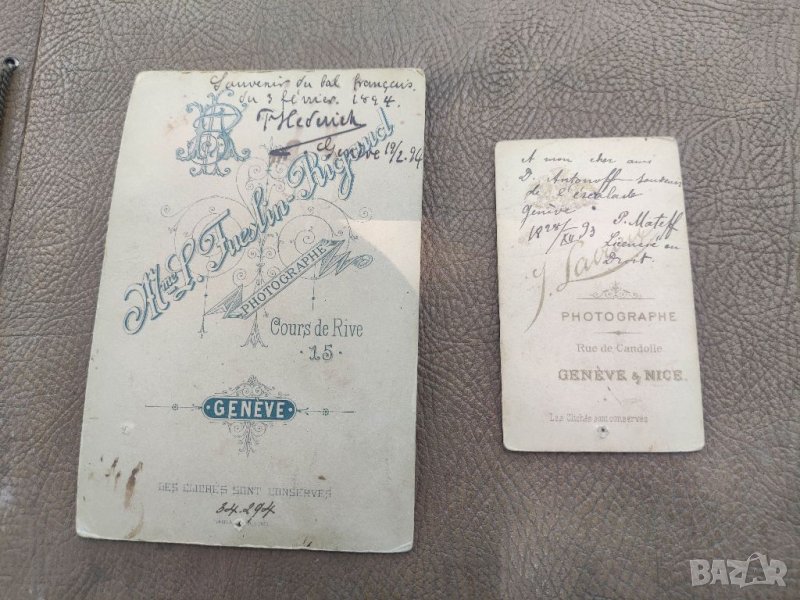 Souvenir du bal français
du 3 février 1894.
Genève 10/2.94
Mme L. Fueslin-Rigaud
PHOTOGRAPHE
Cours de Rive
15
GENÈVE
LES CLICHÉS SONT CONSERVÉS
34.294
A mon cher ami
D. Antonoff souvenir
de l'éscalade
Genève
P. Mateff
Licencié en
Droit.
PHOTOGRAPHE
Rue de Candolle
GENÈVE & NICE.
Les Clichés sont conservés
BAZAR